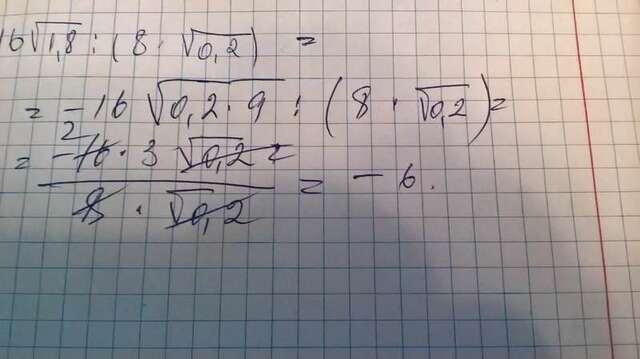 16√1,8 : (8 · √0,2) =
= -16 √0,2 · 9 : (8 · √0,2) =
2
= -16 · 3 √0,2 / 8 · √0,2 = - 6.